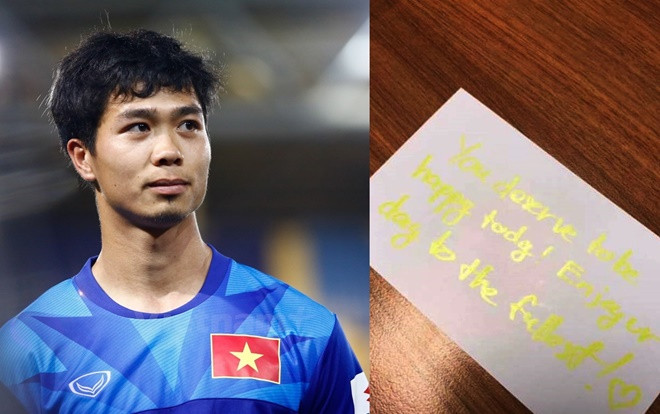 You deserve to be
happy today! Enjoy ur
day to the fullest! ♡